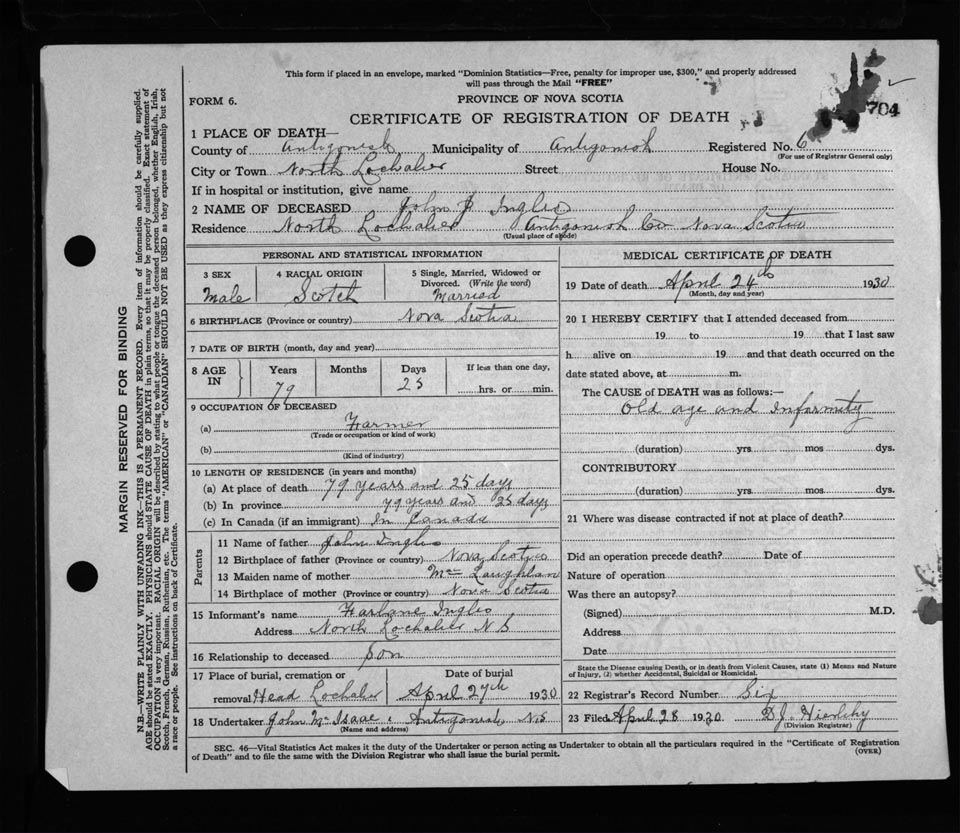 This form if placed in an envelope, marked "Dominion Statistics—Free, penalty for improper use, $300," and properly addressed
will pass through the Mail "FREE"
FORM 6.
PROVINCE OF NOVA SCOTIA
704
CERTIFICATE OF REGISTRATION OF DEATH
1 PLACE OF DEATH—
County of Antigonish Municipality of Antigonish Registered No. 6
(For use of Registrar General only)
City or Town North Lochaber Street House No.
If in hospital or institution, give name
2 NAME OF DECEASED John Inglis
Residence North Lochaber Antigonish Co Nova Scotia
(Usual place of abode)
PERSONAL AND STATISTICAL INFORMATION
3 SEX 4 RACIAL ORIGIN 5 Single, Married, Widowed or
Divorced. (Write the word)
Male Scotch Married
6 BIRTHPLACE (Province or country) Nova Scotia
7 DATE OF BIRTH (month, day and year)
8 AGE IN Years Months Days If less than one day,
79 25 hrs. or min.
9 OCCUPATION OF DECEASED
(a) Farmer
(Trade or occupation or kind of work)
(b)
(Kind of industry)
10 LENGTH OF RESIDENCE (in years and months)
(a) At place of death 79 years and 25 days
(b) In province 79 years and 25 days
(c) In Canada (if an immigrant) In Canada
Parents
11 Name of father John Inglis
12 Birthplace of father (Province or country) Nova Scotia
13 Maiden name of mother McLaughlan
14 Birthplace of mother (Province or country) Nova Scotia
15 Informant's name Harlane Inglis
Address North Lochaber N S
16 Relationship to deceased Son
17 Place of burial, cremation or Date of burial
removal Head Lochaber April 27th 1930
18 Undertaker John McIsaac, Antigonish N.S
(Name and address)
MEDICAL CERTIFICATE OF DEATH
19 Date of death April 24th 1930
(Month, day and year)
20 I HEREBY CERTIFY that I attended deceased from
19 to 19 that I last saw
h alive on 19 and that death occurred on the
date stated above, at m.
The CAUSE of DEATH was as follows:—
Old age and Infirmity
(duration) yrs mos dys.
CONTRIBUTORY
(duration) yrs. mos dys.
21 Where was disease contracted if not at place of death?
Did an operation precede death? Date of
Nature of operation
Was there an autopsy?
(Signed) M.D.
Address
Date
State the Disease causing Death, or in death from Violent Causes, state (1) Means and Nature
of Injury, (2) whether Accidental, Suicidal or Homicidal.
22 Registrar's Record Number Six
23 Filed April 28 1930 D.J.
(Division Registrar)
SEC. 46—Vital Statistics Act makes it the duty of the Undertaker or person acting as Undertaker to obtain all the particulars required in the "Certificate of Registration
of Death" and to file the same with the Division Registrar who shall issue the burial permit. (OVER)
MARGIN RESERVED FOR BINDING
N.B.—WRITE PLAINLY WITH UNFADING INK—THIS IS A PERMANENT RECORD. Every item of information should be carefully supplied.
AGE should be stated EXACTLY. PHYSICIANS should STATE CAUSE OF DEATH in plain terms, so that it may be properly classified. Exact statement of
OCCUPATION is very important. RACIAL ORIGIN will be described by stating to what people or tongue the deceased person belonged, whether English, Irish,
Scotch, French, German, Russian, Ruthenian, etc. The terms "AMERICAN" or "CANADIAN" SHOULD NOT BE USED as they express citizenship but not
a race or people. See instructions on back of Certificate.